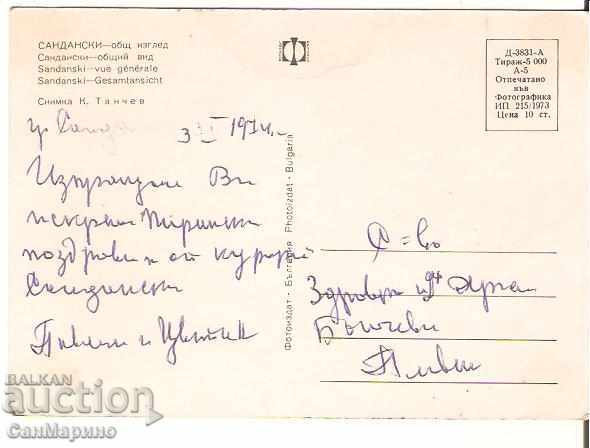 САНДАНСКИ—общ изглед
Сандански—общий вид
Sandanski—vue générale
Sandanski—Gesamtansicht
Снимка К. Танчев
Д-3831-А
Тираж-5 000
А-5
Отпечатано
във
Фотографика
ИП 215/1973
Цена 10 ст.
гр. Санда
3 1974 г.
Изпращаме Ви
искрени Пирински
поздрави от курорт
Сандански
и Цветан
Фотоиздат - България Photoizdat - Bulgaria
С-во
Здравка и
Плевен
BALKAN
auction
СанМарино